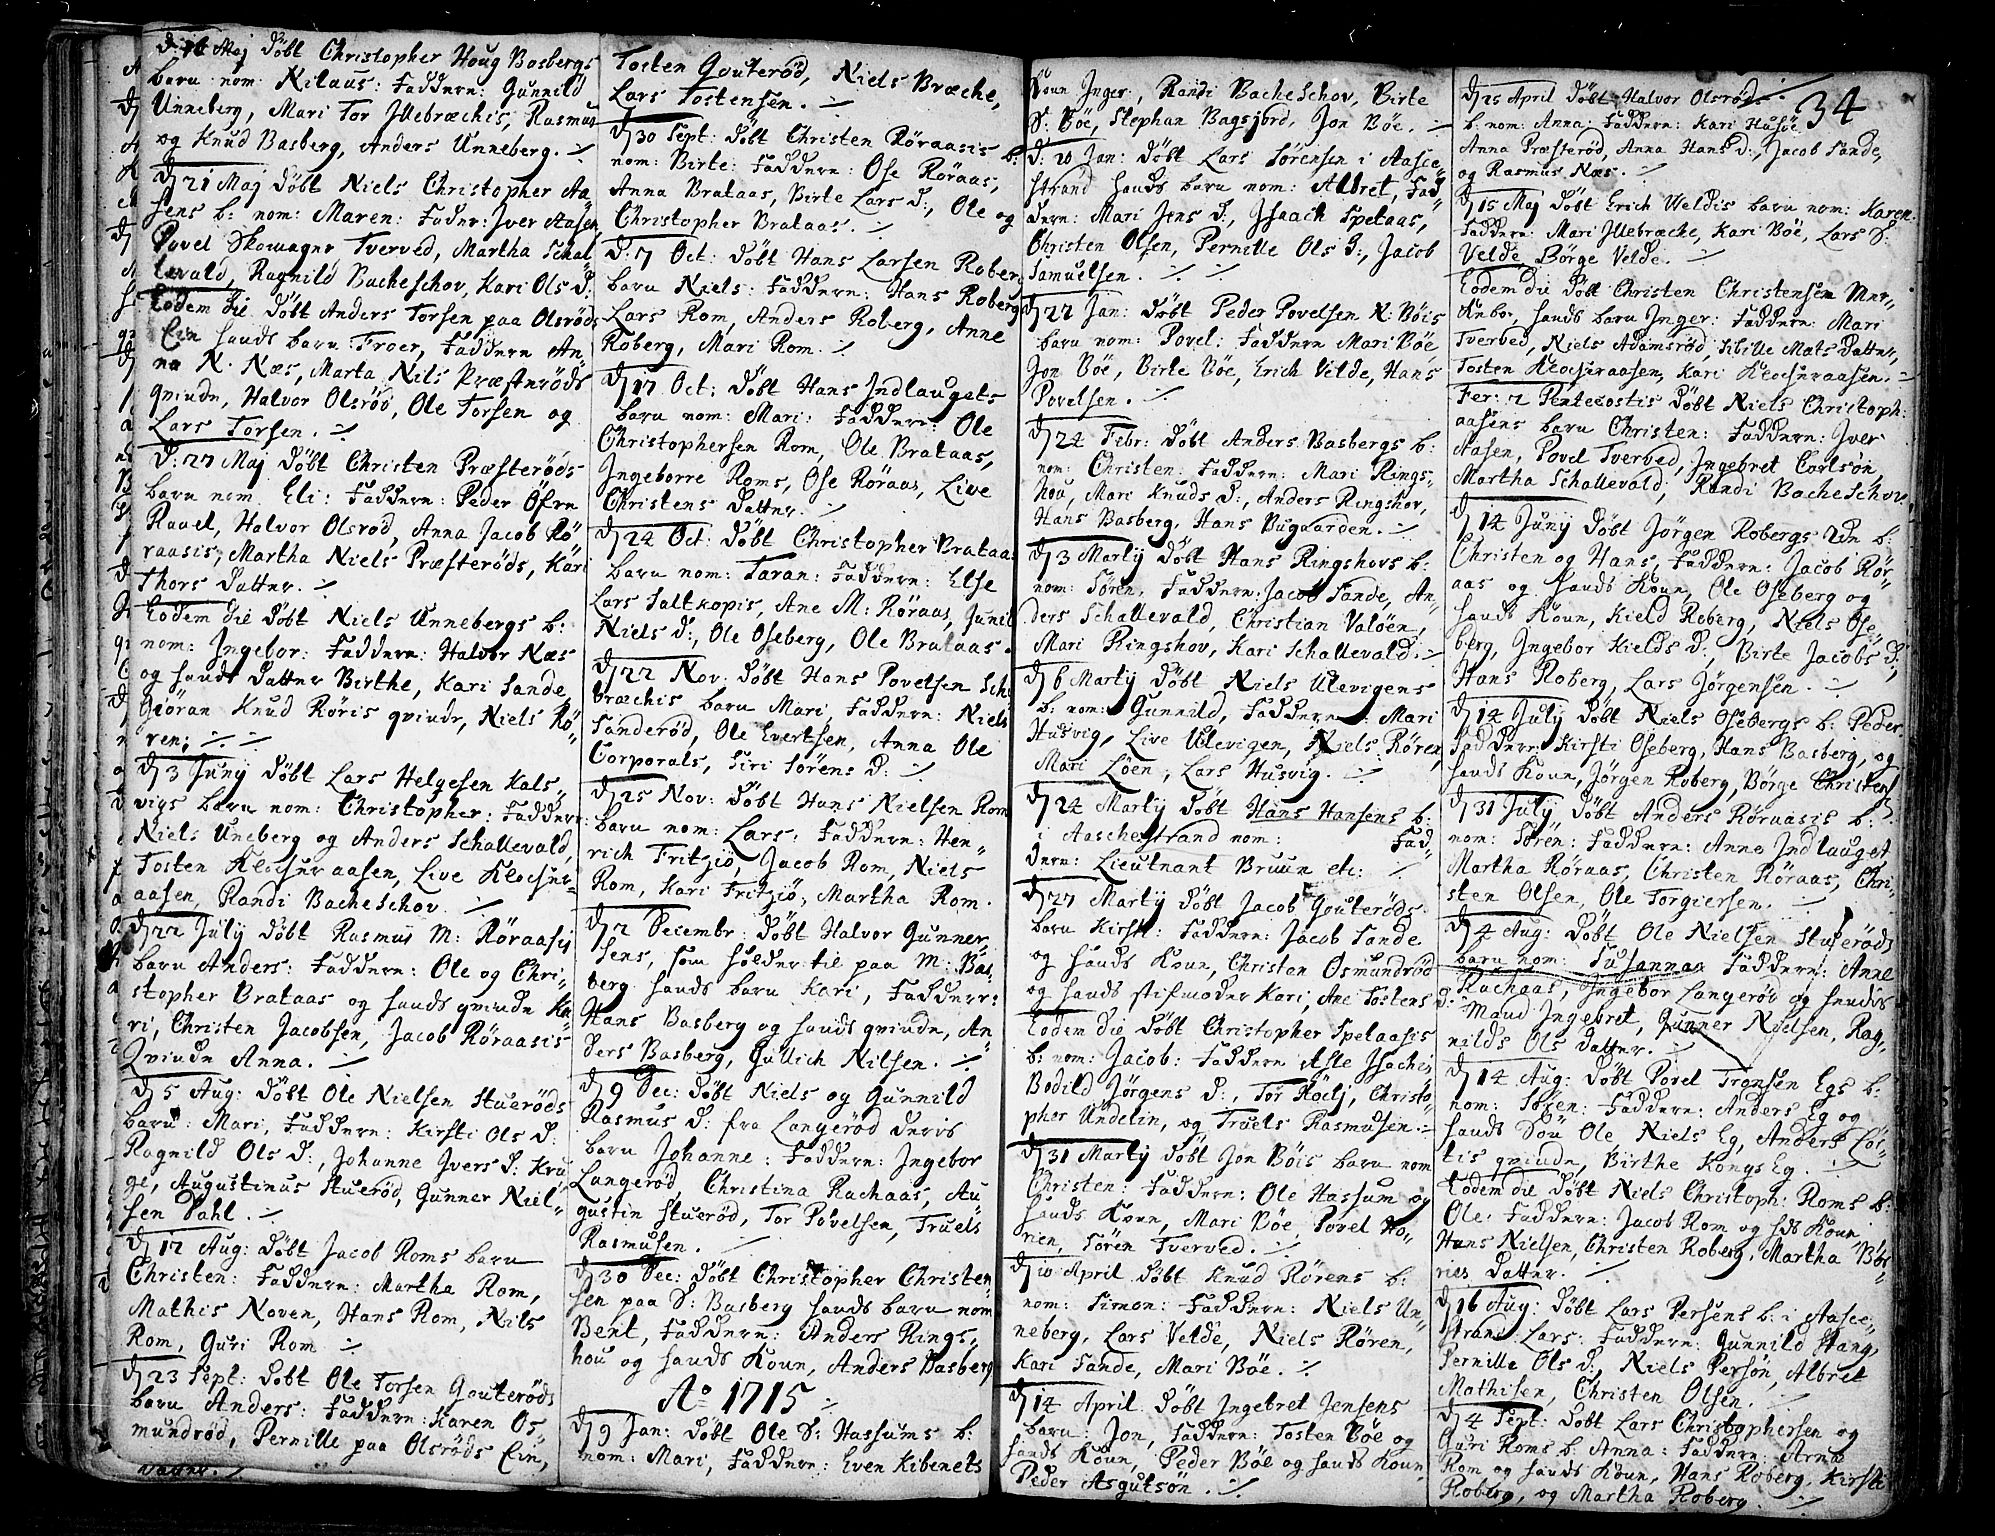 d: 16 Maj döbt Christopher Houg Basbergs
barn nom: Nilaus: Faddere: Gunnild
Unneberg, Mari Tor Illebrechis, Rasmus
og Knud Basberg, Anders Unneberg. ·/·
d 21 Maj döbt Niels Christopher Aa-
sens b: nom: Maren: Fadder: Iver Aasen
Povel Skomager Tverved, Martha Schal-
levald, Ragnild Bacheschov, Kari Ols d:
Eodem die döbt Anders Torsen paa Olsröds
Eie hands barn Froer, Faddere An-
na N. Næs, Marta Nils Præsteröds
qvinde, Halvor Olsröd, Ole Torsen og
Lars Torsen. ·/·
d: 27 Maj döbt Christen Præsteröds
barn nom Eli: Faddere: Peder Öfre
Ravel, Halvor Olsrod, Anna Jacob Rö-
raasis, Martha Niels Præsteröds, Kari
Thors datter. ·/·
Eodem die döbt Niels Unnebergs b:
nom: Ingebor: Faddere: Halvor Næs
og hands datter Birthe, Kari Sande,
Giöran Knud Röris qvinde, Niels Rö-
ren; ·/· ·/·
d 3 Junij döbt Lars Helgesen Kals-
vigs barn nom: Christopher: Fadder:
Niels Uneberg og Anders Schallevald,
Tosten Klocheraasen, Live Klocher-
aasen, Randi Bacheschov ·/·
d 22 Julij döbt Rasmus M: Röraasis
barn Anders: Faddere: Ole og Chri-
stopher Brataas og hands qvinde Ka-
ri, Christen Jacobsen, Jacob Röraasis
Qvinde Anna. ·/·
d 5 Aug: döbt Ole Nielsen Stueröds
barn: Mari, Faddere: Kirsti Ols d:
Ragnild Ols d:, Johanne Ivers d: Kru-
ge, Augustinus Stueröd, Gunner Niel-
sen Dahl. ·/·
d 12 Aug: döbt Jacob Roms barn
Christen: Faddere: Martha Rom,
Mathis Noven, Hans Rom, Nils
Rom, Guri Rom ·/·
d 23 Sept: döbt Ole Torsen Gouteröds
barn Anders: Faddere: Karen Os-
mundröd, Pernille paa Olsröds Eie,
Tosten Gouteröd, Niels Bræche,
Lars Tostensen. ·/·
d 30 Sept: döbt Christen Röraasis b:
nom: Birte: Faddere: Ose Röraas,
Anna Brataas, Birte Lars d:, Ole og
Christopher Brataas. ·/·
d: 7 Oct: döbt Hans Larsen Roberg
barn Niels: Faddere: Hans Roberg
Lars Rom, Anders Roberg, Anne
Roberg, Mari Rom. ·/·
d 17 Oct: döbt Hans Indlaugets
barn nom: Mari: Faddere: Ole
Christophersen Rom, Ole Brataas,
Ingeborre Roms, Ose Röraas, Live
Christens datter. ·/·
d 24 Oct: döbt Christopher Brataas
barn nom: Taran: Faddere: Else
Lars Saltkopis, Ane M: Röraas, Junil
Niels d:, Ole Oseberg, Ole Brataas.
d 22 Nov: döbt Hans Povelsen Schi-
bræchis barn Mari, Faddere: Niels
Sanderöd, Ole Evertsen, Anna Ole
Corporals, Siri Sörens d: ·/·
d 25 Nov: döbt Hans Nielsen Rom
barn nom: Lars: Faddere: Hen-
rich Fritziö, Jacob Rom, Niels
Rom, Kari Fritziö, Martha Rom.
d 2 Decembr: döbt Halvor Gunner-
sens, som holder til paa M: Bas-
berg hands barn Kari, Faddere:
Hans Basberg og hands qvinde, An-
ders Basberg, Gullich Nilsen. ·/·
d 9 Dec: döbt Niels og Gunnild
Rasmus d: fra Langeröd deris
barn Johanne: Faddere: Ingebor
Langeröd, Christina Rachaas, Au-
gustin Stueröd, Tor Povelsen, Truels
Rasmusen. ·/·
d 30 Dec: döbt Christopher Christen-
sen paa S: Basberg hands barn nom
Bent, Faddere: Anders Rings-
hou og hands Kone, Anders Basberg
A° 1715 ·/·
d 9 Jan: döbt Ole S: Hassums b:
nom: Mari, Faddere: Even Kibenets
Kone Inger, Randi Bacheschov, Birte
S: Böe, Stephan Bagsjord, Jon Böe. ·/·
d: 20 Jan: döbt Lars Sörensen i Aasce-
strand hands barn nom: Albret, Fad-
dere: Mari Jens d:, Isaach Spetaas,
Christen Olsen, Pernille Ols d:, Jacob
Samuelsen. ·/· ·/·
d 27 Jan: döbt Peder Povelsen N: Böis
barn nom: Povel: Faddere Mari Böe
Jon Böe, Birte Böe, Erich Vilde, Hans
Povelsen. ·/·
d 24 Febr: döbt Anders Basbergs b:
nom: Christen: Faddere: Mari Rings-
hou, Mari Knuds d:, Anders Ringshov,
Hans Basberg, Hans Bugaarden. ·/·
d 3 Martij döbt Hans Ringshovs b:
nom: Sören, Faddere: Jacob Sande, An-
ders Schallevald, Christian Valöen,
Mari Ringshov, Kari Schallevald. ·/·
d 6 Martij döbt Niels Ulevigens
b: nom: Gunnild, Faddere: Mari
Husvig, Live Ulevigen, Niels Rören,
Mari Löen, Lars Husvig. ·/·
d 24 Martij döbt Hans Hansens b:
i Aaschestrand nom: Fad-
dere: Lieutnant Bruun etc: ·/·
d 27 Martij döbt Jacob Gouteröds
barn Kirsti: Faddere: Jacob Sande
og hands Kone, Christen Osmundröd
og hands stifmoder Kari, Ane Tostens d:
Eodem die döbt Christopher Spetaasis
b: nom: Jacob: Faddere Asle Isachis
Bodild Jörgens d:, Tor Röelj, Christo-
pher Undelin, og Truels Rasmusen. ·/·
d 31 Martij döbt Jon Böis barn nom
Christen: Faddere: Ole Hassum og
hands Kone, Mari Böe, Povel No-
rien, Sören Tverved. ·/·
d 10 April döbt Knud Rörens b:
nom: Simon: Faddere: Niels Un-
neberg, Lars Velde, Niels Rören,
Kari Sande, Mari Böe. ·/·
d 14 April döbt Ingebret Jensens
barn: Jon, Faddere: Tosten Böe og
hands Kone, Peder Böe og hands Kone
Peder Asgutsön. ·/·
34
d 25 April döbt Halvor Olsröds
b: nom: Anna: Faddere: Kari Husöe
Anna Præsteröd, Anna Hans d:, Jacob Sande,
og Rasmus Næs. ·/·
d 15 Maj döbt Erich Veldis barn nom: Karen
Faddere: Mari Illebræche, Kari Böe, Lars S:
Velde, Börge Velde. ·/·
Eodem die döbt Christen Christensen
hands barn Inger: Faddere: Mari
Tverved, Niels Adamsröd, Sibille Mats datter,
Tosten Klocheraasen, Kari Klocheraasen. ·/·
Fer: 2 Pentecostis döbt Niels Christoph:
aasens barn Christen: Faddere: Iver
Aasen, Povel Tverved, Ingebret Carlsön
Martha Schallevald, Randi Bacheschov
d 14 Junij döbt Jörgen Robergs 2de b:
Christen og Hans, Faddere: Jacob Rör-
aas og hands Kone, Ole Oseberg og
hands Kone, Kield Roberg, Niels Ose-
berg, Ingebor Kields d:, Birte Jacobs d:,
Hans Roberg, Lars Jörgensen. ·/·
d 14 Julij döbt Niels Osebergs b: Peder,
Faddere: Kirsti Oseberg, Hans Basberg, og
hands Kone, Jörgen Roberg, Börge Christens.
d 31 Julij döbt Anders Röraasis b:
nom: Sören: Faddere: Anna Indlauget
Martha Röraas, Christen Röraas, Chri-
sten Olsen, Ole Torgiersen. ·/·
d 4 Aug: döbt Ole Nielsen Stueröds
barn nom: Susanna: Faddere: Anne
Rachaas, Ingebor Langeröd og hendes
Mand Ingebret, Gunner Nielsen, Rag-
nilds Ols datter. ·/·
d 14 Aug: döbt Povel Tronsen Egs b:
nom: Sören: Faddere: Anders Eg og
hands Sön Ole Niels Eg, Anders
qvinde, Birthe Kongs Eg. ·/·
Eodem die döbt Niels Christoph: Roms b:
Ole: Faddere: Jacob Rom og hds Kone,
Hans Nielsen, Christen Roberg, Martha Bör-
ries datter. ·/·
d 16 Aug: döbt Lars Persens b: i Aasce-
strand: Lars: Faddere: Gunnild Stang,
Pernille Ols d:, Niels Persön, Albret
Mathisen, Christen Olsen. ·/·
d 4 Sept: döbt Lars Christophersen og
Guri Roms b: Anna: Faddere: Arne
Rom og hands Kone, Hans Roberg, Kirsti
Roberg, og Martha Roberg. ·/·